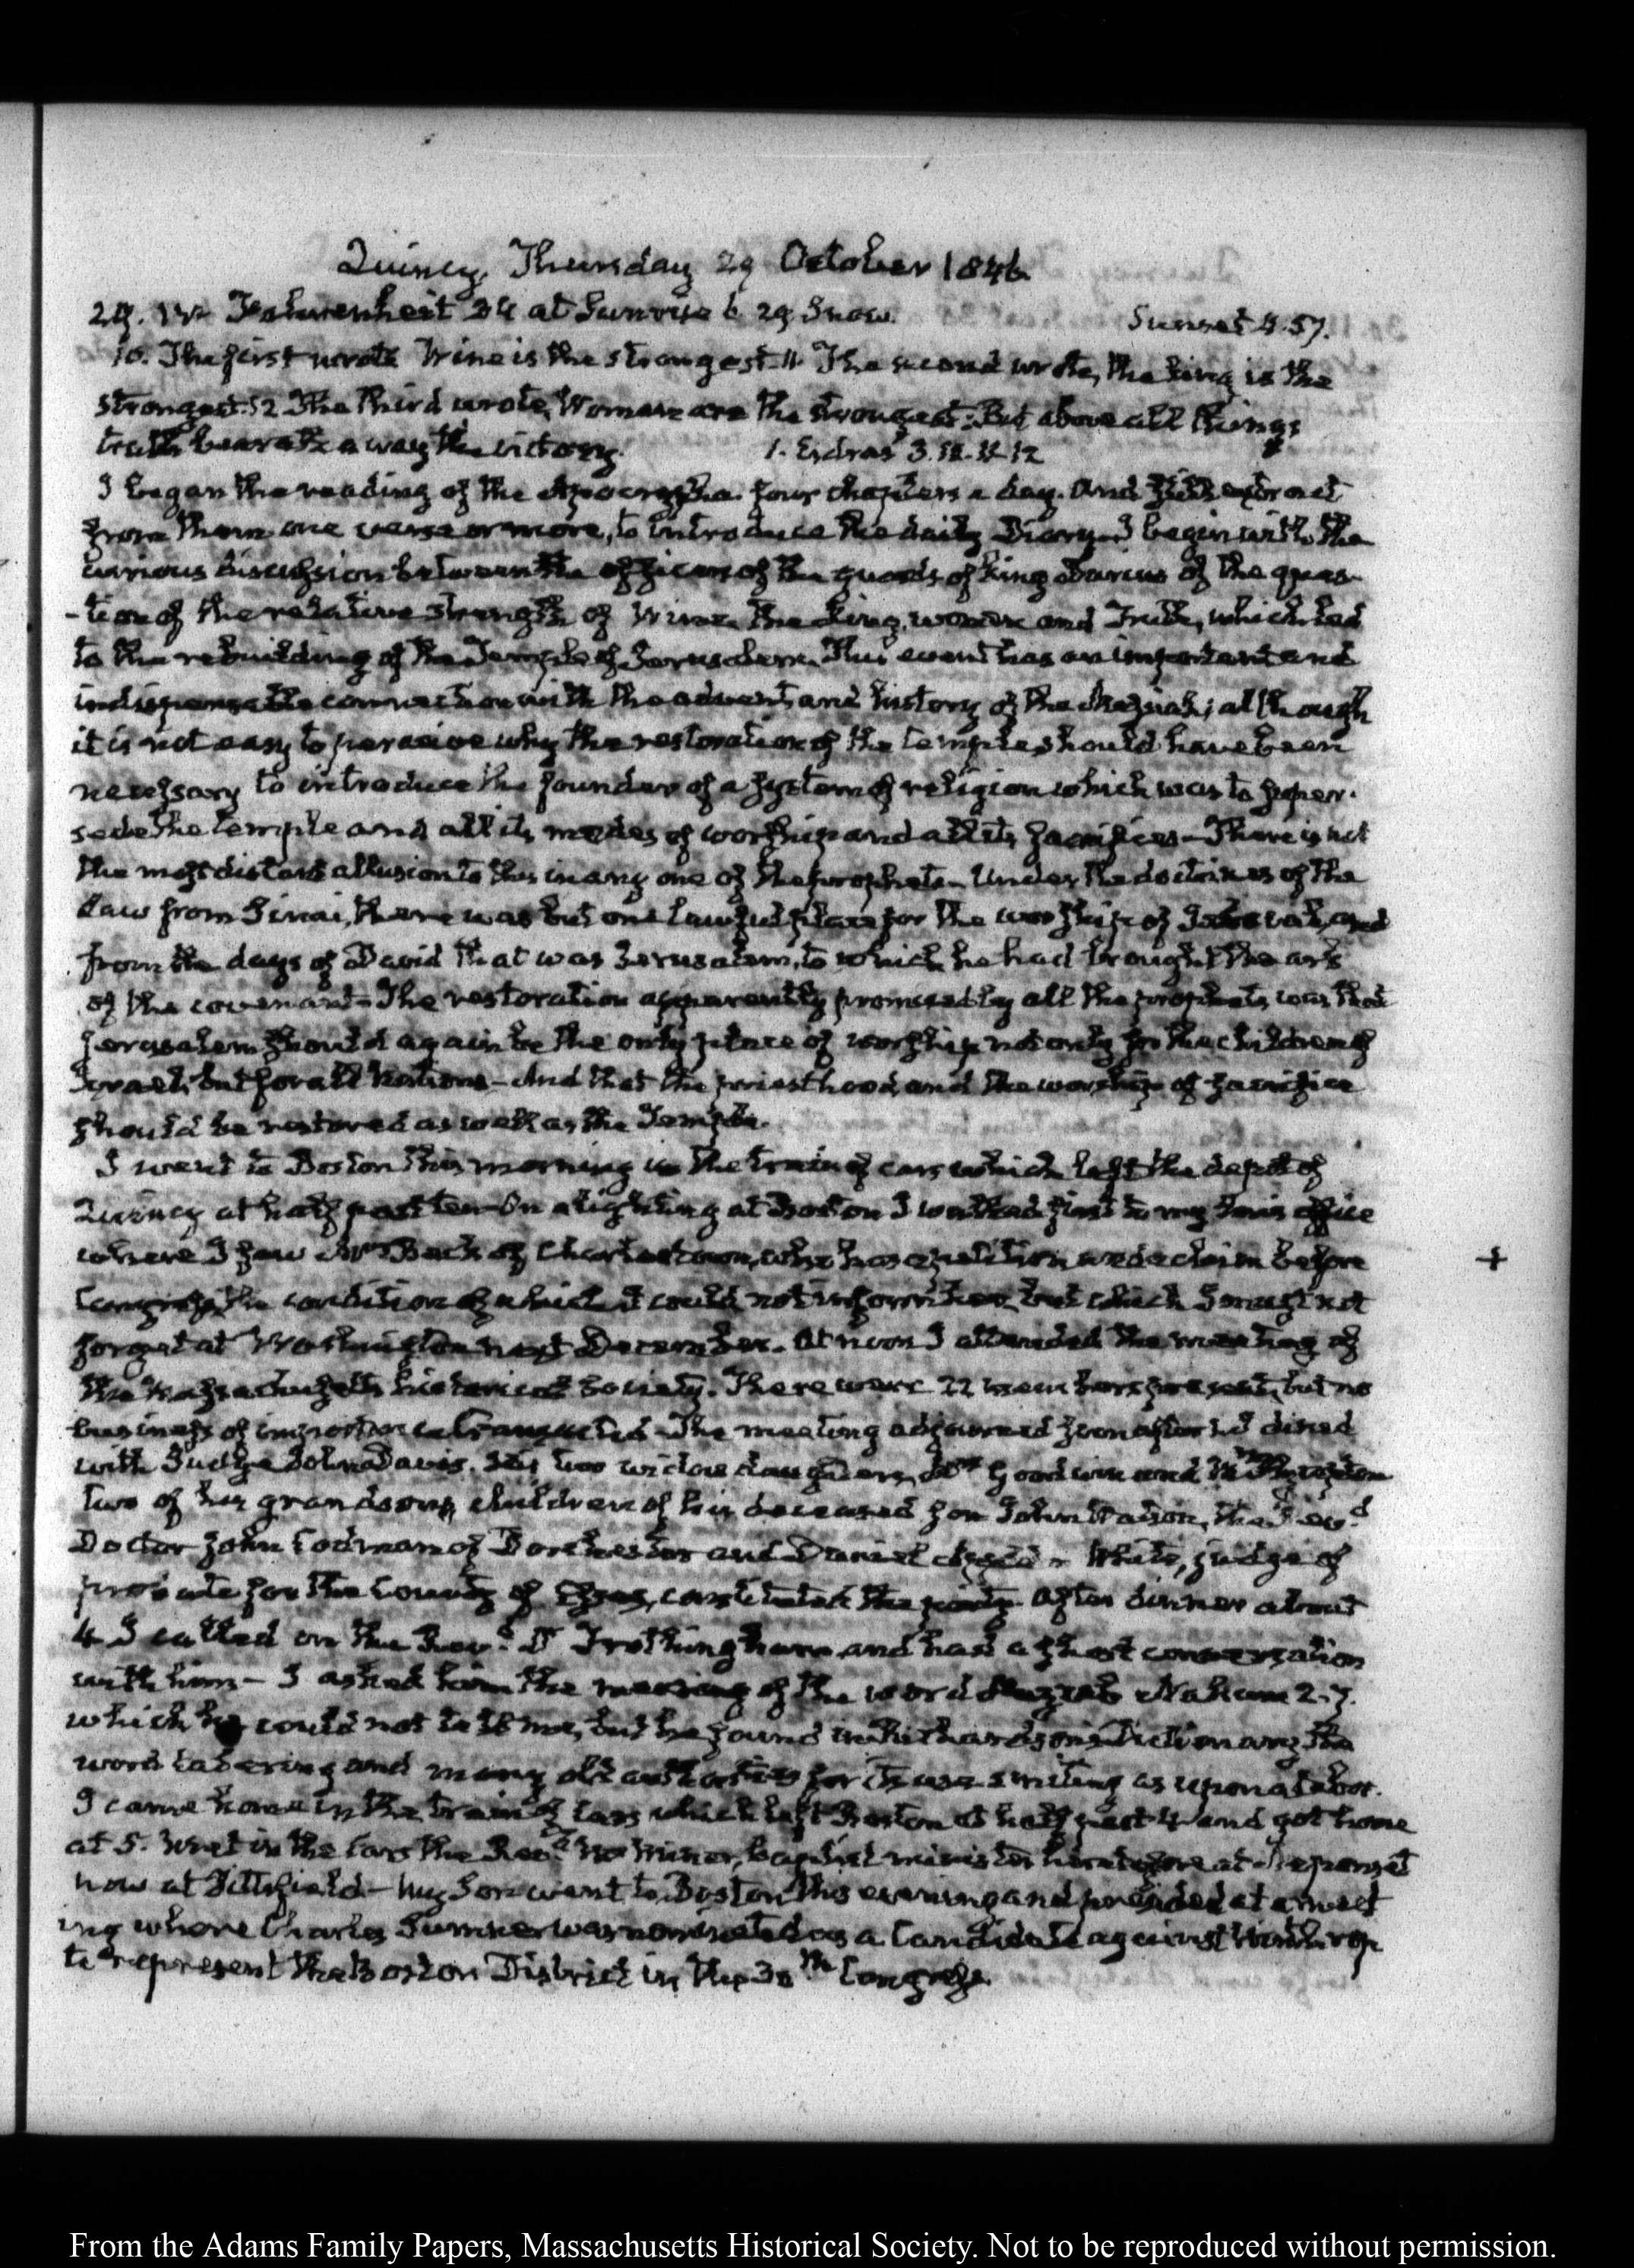 Quincy, Thursday 29 October 1846.
29. IV. Fahrenheit 34 at Sunrise 6. 29. Snow. Sunset 4.57.
10. The first wrote Wine is the strongest. 11 The second wrote, the king is the
strongest. 12. The third wrote, Women are the strongest: But above all things
truth beareth away the victory. 1. Esdras 3. 10. 11. 12
I began the reading of the Apocrypha four chapters a day. And extract
from them one verse or more, to introduce the daily Diary. I begin with the
curious discussion between the officers of the guards of king Darius of the ques-
-tion of the relative strength of Wine, the king, women and Truth, which led
to the rebuilding of the Temple of Jerusalem. This event has an important and
indispensable connection with the advent and history of the Messiah; although
it is not easy to perceive why the restoration of the temple should have been
necessary to introduce the founder of a system of religion which was to super-
sede the temple and all its modes of worship and all its sacrifices - There is not
the most distant allusion to this in any one of the prophets - Under the doctrines of the
Law from Sinai, there was but one lawful place for the worship of Jehovah, and
from the days of David that was Jerusalem, to which he had brought the ark
of the covenant - The restoration apparently promised by all the prophets was that
Jerusalem should again be the only place of worship not only for the children of
Israel, but for all Nations - And that the priesthood and the worship of sacrifice
should be restored as well as the Temple.
I went to Boston this morning in the train of cars which left the depot of
Quincy at half past ten - On alighting at Boston I walked first to my Son's office
where I saw Mr of Charlestown, who has a petition and a claim before +
Congress, the condition of which I could not inform him, but which I must not
forget at Washington next December. At noon I attended the meeting of
the Massachusetts historical Society. There were 22 members present, but no
business of importance transacted - The meeting adjourned soon after 1. I dined
with Judge John Davis. His two widow daughters, Mrs Goodwin and
two of his grandsons, children of his deceased son John Watson, the Revd.
Doctor John Codman of Dorchester and Daniel Appleton White, judge of
probate for the County of Essex, constituted the party. After dinner about
4 I called on the Revd. Dr Frothingham and had a short conversation
with him - I asked him the meaning of the word Nahum 2.7.
which he could not tell me, but he found in Richardson's Dictionary the
word tabering and many old authorities for its use smiting as upon a tabor.
I came home in the train of cars which left Boston at half past 4 and got home
at 5. Met in the Cars the Revd. Miner, baptist minister heretofore at Neponset
now at Pittsfield - My Son went to Boston this evening and presided at a meet
ing where Charles Sumner was nominated as a Candidate against Winthrop
to represent the Boston District in the 30th Congress.
From the Adams Family Papers, Massachusetts Historical Society. Not to be reproduced without permission.